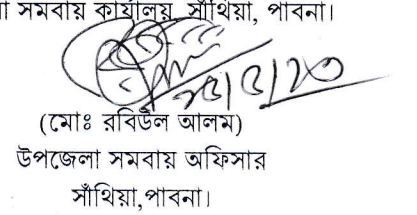 া সমবায় কার্যালয়, সাঁথিয়া, পাবনা।
(মোঃ রবিউল আলম)
উপজেলা সমবায় অফিসার
সাঁথিয়া,পাবনা।